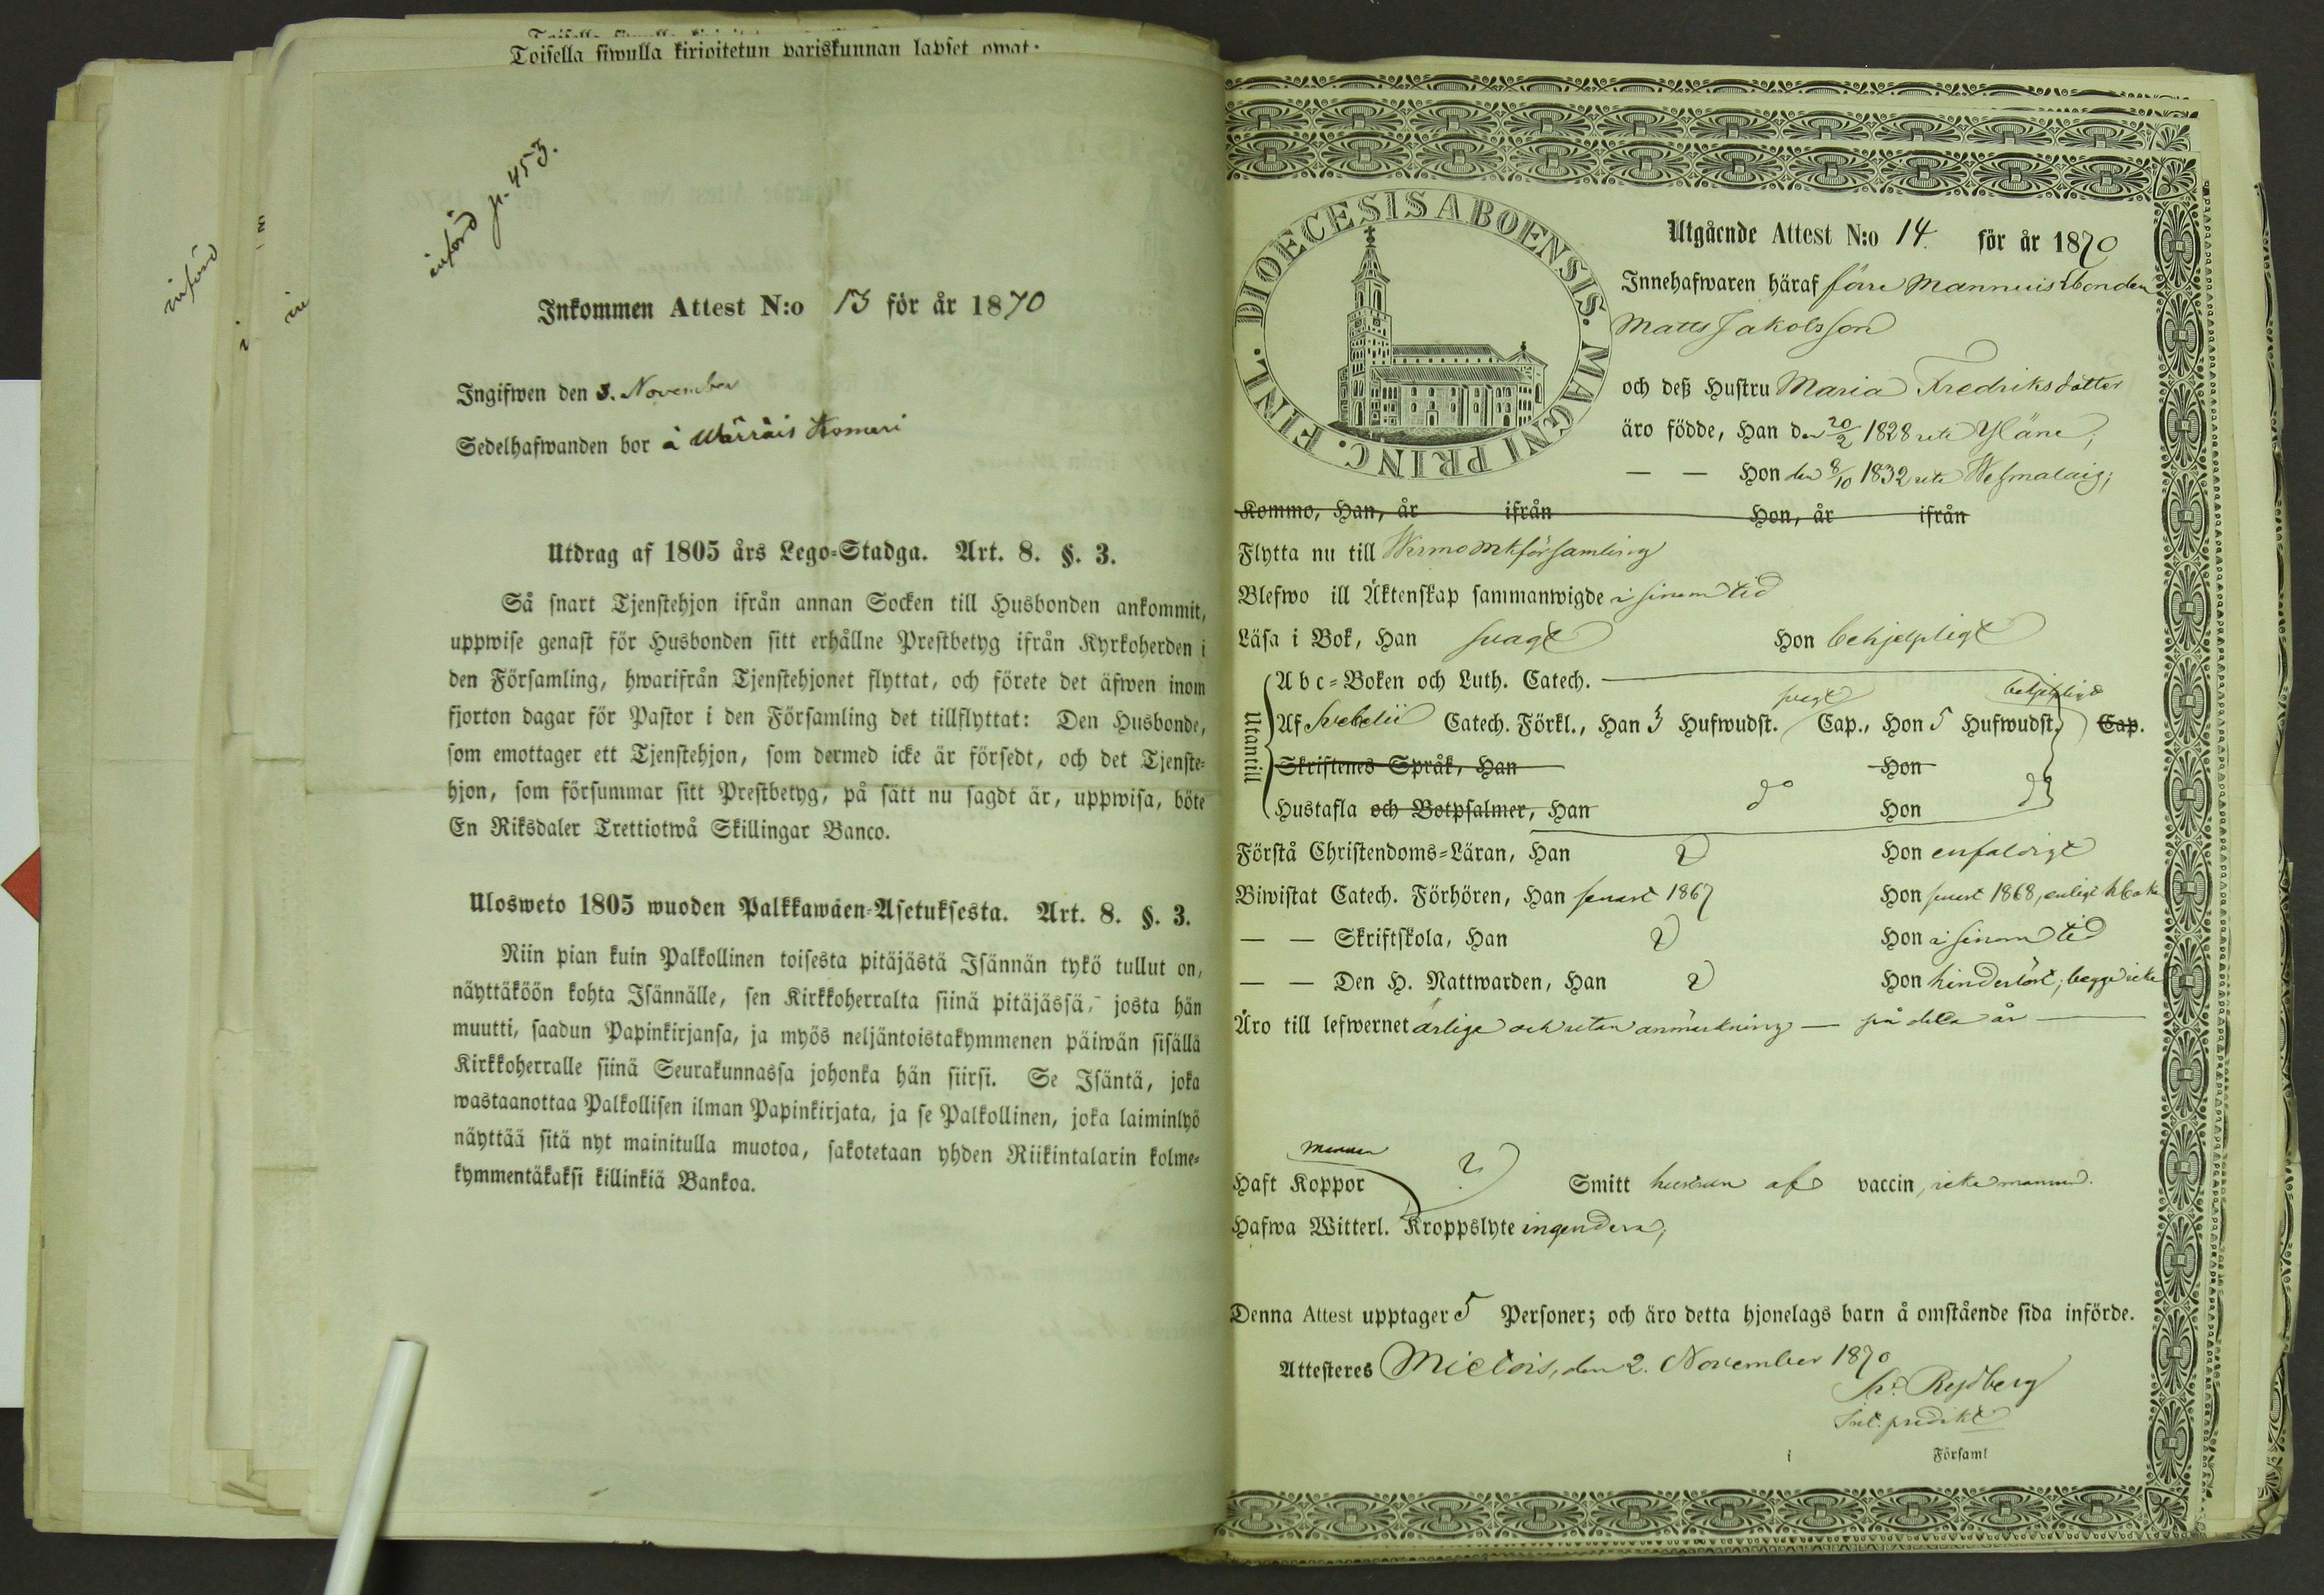 Toisella siwulla kirjoitetun pariskunnan lapset owat:
införd p. 453.
införd
Inkommen Attest N:o 13 för år 1870
Ingifwen den 3. November
Sedelhafwanden bor å Wärräis Komeri
Utdrag af 1805 års Lego-Stadga. Art. 8. §. 3.
Så snart Tjenstehjon ifrån annan Socken till Husbonden ankommit,
uppwise genast för Husbonden sitt erhållne Prestbetyg ifrån Kyrkoherden i
den Församling, hwarifrån Tjenstehjonet flyttat, och förete det äfwen inom
fjorton dagar för Pastor i den Församling det tillflyttat: Den Husbonde,
som emottager ett Tjenstehjon, som dermed icke är försedt, och det Tjenste-
hjon, som försummar sitt Prestbetyg, på sätt nu sagdt är, uppwisa, böte
En Riksdaler Trettiotwå Skillingar Banco.
Ulosweto 1805 wuoden Palkkawäen-Asetuksesta. Art. 8. §. 3.
Niin pian kuin Palkollinen toisesta pitäjästä Isännän tykö tullut on,
näyttäköön kohta Isännälle, sen Kirkkoherralta siinä pitäjässä, josta hän
muutti, saadun Papinkirjansa, ja myös neljäntoistakymmenen päiwän sisällä
Kirkkoherralle siinä Seurakunnassa johonka hän siirsi. Se Isäntä, joka
wastaanottaa Palkollisen ilman Papinkirjata, ja se Palkollinen, joka laiminlyö
näyttää sitä nyt mainitulla muotoa, sakotetaan yhden Riikintalarin kolme-
kymmentäkaksi killinkiä Bankoa.
DIOECESIS ABOENSIS. MAGNI PRINC. FINL.
Utgående Attest N:o 14. för år 1870
Innehafwaren häraf förre Mannuis bonden
Matts Jakobsson
och deß Hustru Maria Fredriksdotter
äro födde, Han den 20/2 1828 uti Yläne,
— — Hon den 8/10 1832 uti Weßmalaig;
Kommo, Han, år ifrån Hon, år ifrån
Flytta nu till Wirmo mkförsamling
Blefwo ill Äktenskap sammanwigde i sinom tid
Läsa i Bok, Han svagt Hon behjelpligt
Utantill
Abc-Boken och Luth. Catech.
svagt behjelpligt
Af Svebelii Catech. Förkl., Han 3 Hufwudst. Cap., Hon 5 Hufwudst. Cap.
Skriftenes Språk, Han Hon
Hustafla och Botpsalmer, Han do Hon do
Förstå Christendoms-Läran, Han Hon enfaldigt
Biwistat Catech. Förhören, Han senast 1867 Hon senast 1868, enligt
— — Skriftskola, Han Hon i sinom tid
— — Den H. Nattwarden, Han Hon hinderlöst; begge icke
Äro till lefwernet ärliga och utan anmärkning — på detta år —
mannen
Haft Koppor ? Smitt hustrun af vaccin, icke mannen.
Hafwa Witterl. Kroppslyte ingendera;
Denna Attest upptager 5 Personer; och äro detta hjonelags barn å omstående sida införde.
Attesteres Mietois, den 2. November 1870
Fr. Rydberg
predikt
i Förs­aml